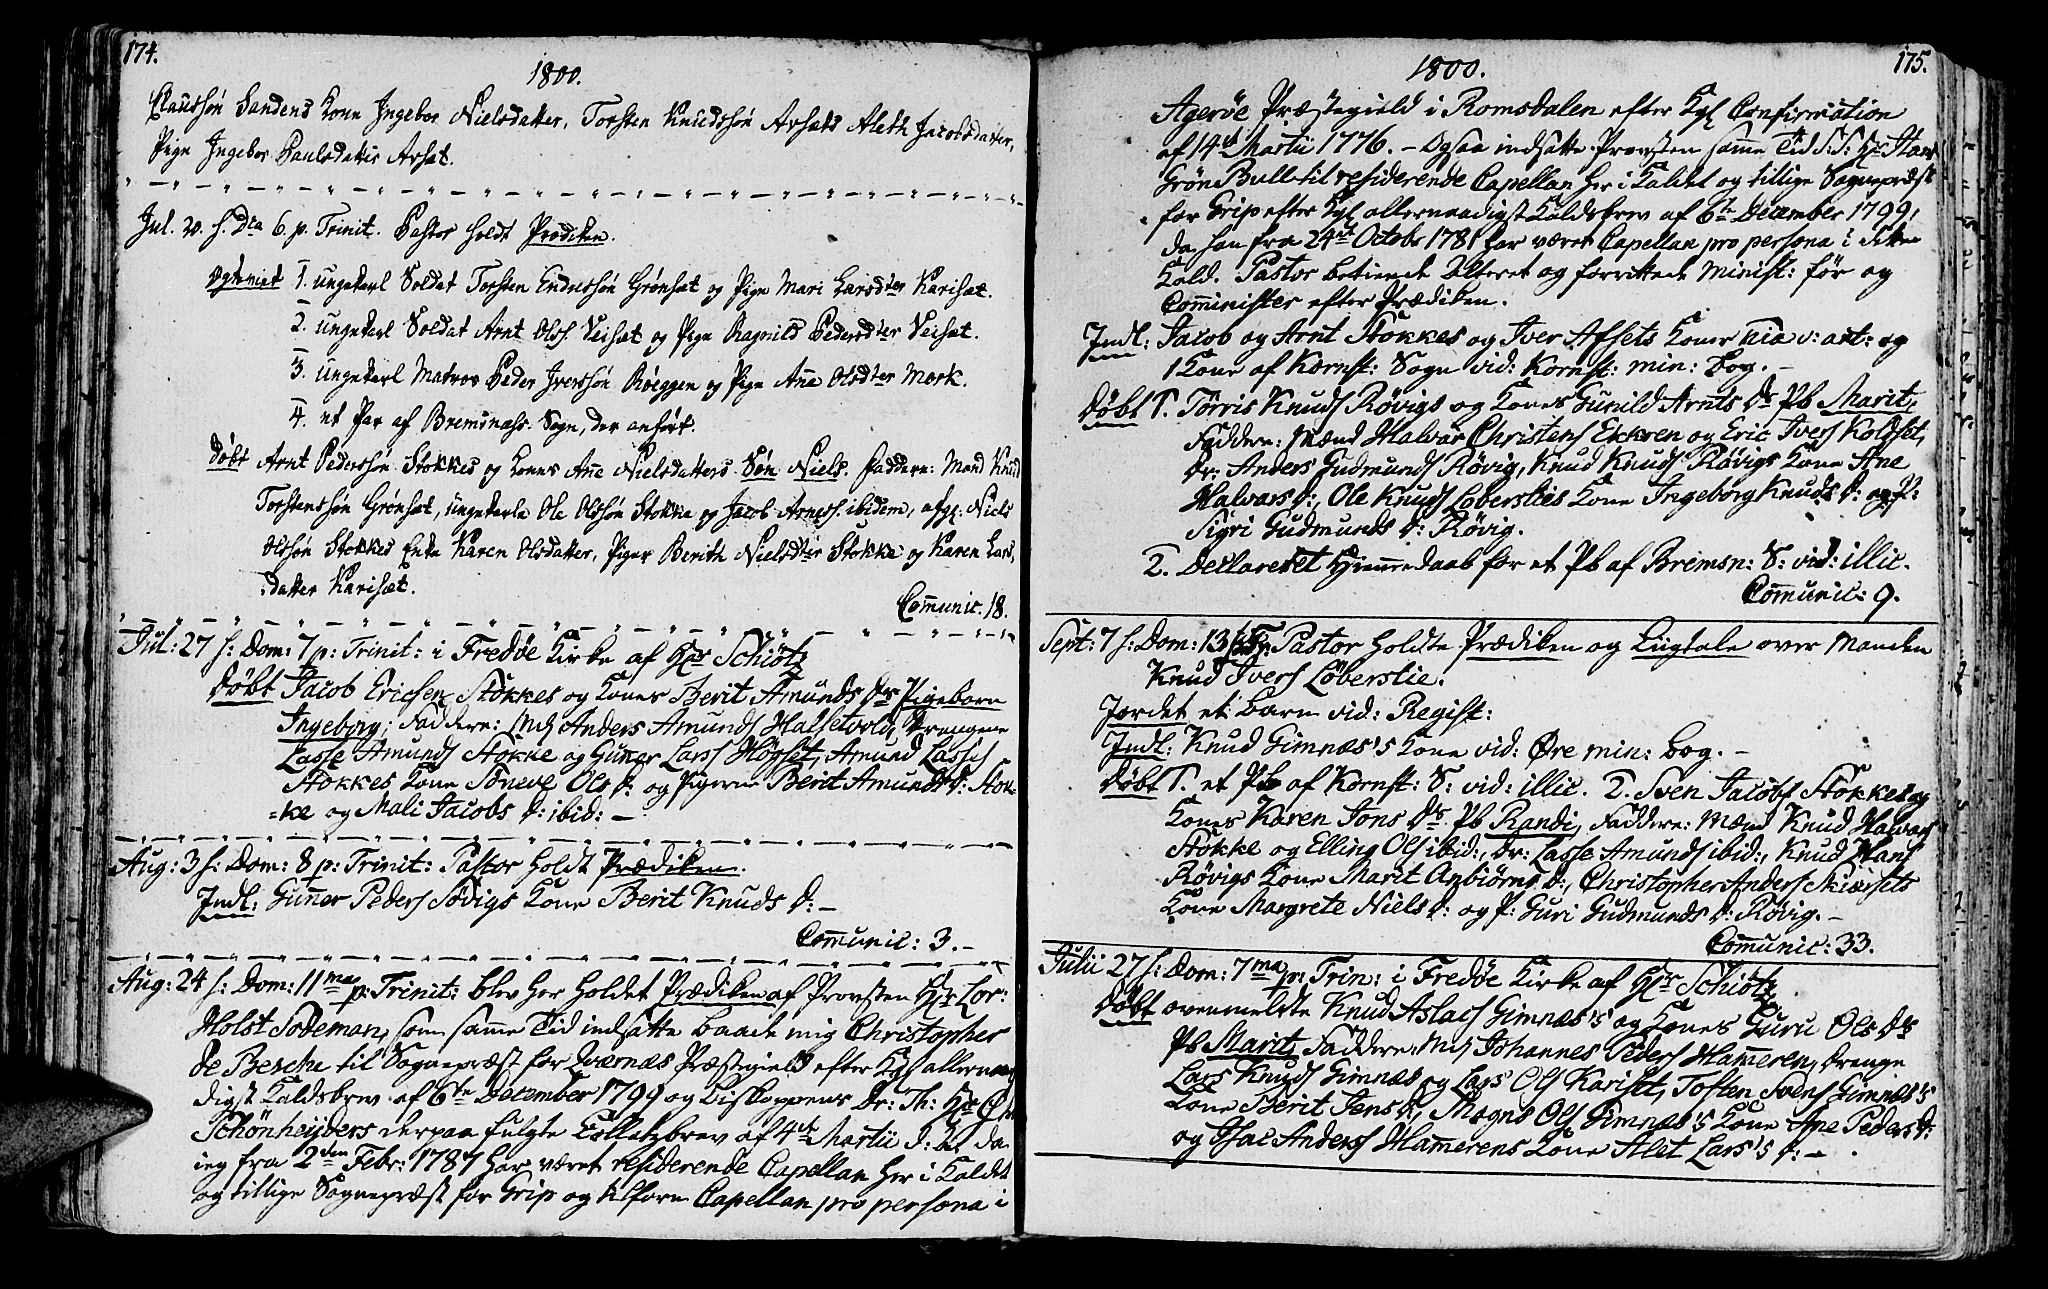 174.
1800.
Claussøn Sandens Kone Ingebor Nielsdatter, Torsten Knudssøn Arsæts Aleth Jacobsdatter,
Pige Ingebor Paulsdatter Arsæt.
Jul. 20. f. Dca 6. p. Trinit. Pastor holdt Prædiken.
1. ungekarl Soldat Torsten Endressøn Grønsæt og Pige Mari Larsdter Karisæt.
2. ungekarl Soldat Arnt Olss. Veisæt og Pige Ragnild Pedersdter Veisæt.
3. ungekarl Matros Peder Iverssøn Røeggen og Pige Ane Olsdter Mork.
4. et Par af Bremsnæss Sogn, der anført.
Døbt Arnt Pederssøn Stokkes og Kones Ane Nielsdatters Søn Niels. Faddere: Mand Knud
Torstenssøn Grønsæt, ungekarle Ole Olssøn Stokke og Jacob Arness. ibidem, afg: Niels
Olssøn Stokkes Enke Karen Olsdatter, Piger Berith Nielsdter Stokke og Karen Lars
datter Karisæt.
Comunic. 18.
Jul: 27 f: Dom: 7 p: Trinit: i Fredøe Kirke af Hr Schiøtz
Døbt Jacob Ericsen Stokkes og Kones Berit Amunds Dr Pigebarn
Ingeborg; Faddere: Md Anders Amunds Halsetvold, Drengene
Lasse Amunds Stokke og Guner Lars Højset, Amund Lasses
Stokkes Kone Søneve Ols D: og Pigerne Berit Amunds D: Stok-
=ke og Mali Jacobs D: ibid: —
Aug: 3 f: Dom: 8 p: Trinit: Pastor holdt Prædiken.
Indl: Guner Peders Sødigs Kone Berit Knuds D: —
Comunic: 3. —
Aug: 24 f: Dom: 11ma p: Trinit: blev her holdet Prædiken af Provsten Hr Lor:
Holst Sodeman, som samme Tid indsatte baade mig Christopher
de Besche til Sognepræst for Qværnæs Præstegield efter Kgl allernaa
digst Kaldsbrev af 6te December 1799 og Biskoppens Dr: Th: Hr
Schönheyders derpaa fulgte Collatzbrev af 4de Martii da
ieg fra 2den Febr: 1781 har været residerende Capellan her i Kaldet
og tillige Sognepræst for Grip og tilforn Capellan pro persona i
175.
1800.
Agerøe Præstegield i Romsdalen efter Kgl Confirmation
af 14d Martii 1776. — Ogsaa indsatte Provsten samme Tid S: T: Hr
Grøn Bull til residerende Capellan her i Kaldet og tillige Sognepræst
for Grip efter Kgl allernaadigst Kaldsbrev af 6te December 1799,
da han fra 24de Octobr 1781 har været Capellan pro persona i dette
Kald. Pastor betiente Alteret og forrettede Minist: før og
Cominister efter Prædiken.
Indl: Jacob og Arnt Stokkes og Iver Afsets Koner og
1 Kone af Kornst: Sogn vid: Kornst: min: bog. —
Døbt 1. Törris Knuds Røvigs og Kones Gunild Arnts Drs Pb Marit,
Faddere: Mænd Halvar Christens Ekkren og Eric Ivers Kolset,
Dr: Anders Gudmunds Røvig, Knud Knuds Røvigs Kone Ane
Halvars D:, Ole Knuds Løberslies Kone Ingeborg Knuds D: og P:
Sigri Gudmunds D: Røvig.
2. Declareret Hiemedaab for et Pb af Bremsn: S: vid: illic.
Comunic: 9.
Sept: 7 f: Dom: 13 p: Tr. Pastor holdte Prædiken og Liigtale over Manden
Knud Ivers Løberslie.
Jordet et Barn vid: Regist:
Indl: Knud Gimnæs's Kone vid: Øre min: bog. —
Døbt 1. et Pb af Kornst: S: vid: illic. 2. Sven Jacobs Stokkes og
Kones Karen Jons Drs Pb Randi, Faddere: Mænd Knud Halvars
Stokke og Elling Ols ibid:, Dr: Lasse Amunds ibid:, Knud Hans
Røvigs Kone Marit Anbiörns D:, Christopher Anders Skiærsets
Kone Margrete Niels D: og P: Guri Gudmunds D: Røvig. —
Comunic: 33.
Julii 27 f: Dom: 7ma p: Trin: i Fredøe Kirke af Hr Schiøtz
Døbt ovenmeldte Knud Aslacs Gimnæs's og Kones Guru Ols Drs
Pb Marit, Faddere, Md Johannes Peders Hameren, Drenge
Lars Knuds Gimnæs og Lars Ols Kariset, Tosten Svens Gimnæs's
Kone Berit Jens D:, Mogns Ols Gimnæs's Kone Ane Peders D:
og Isac Anders Hamerens Kone Alet Lars's D: —